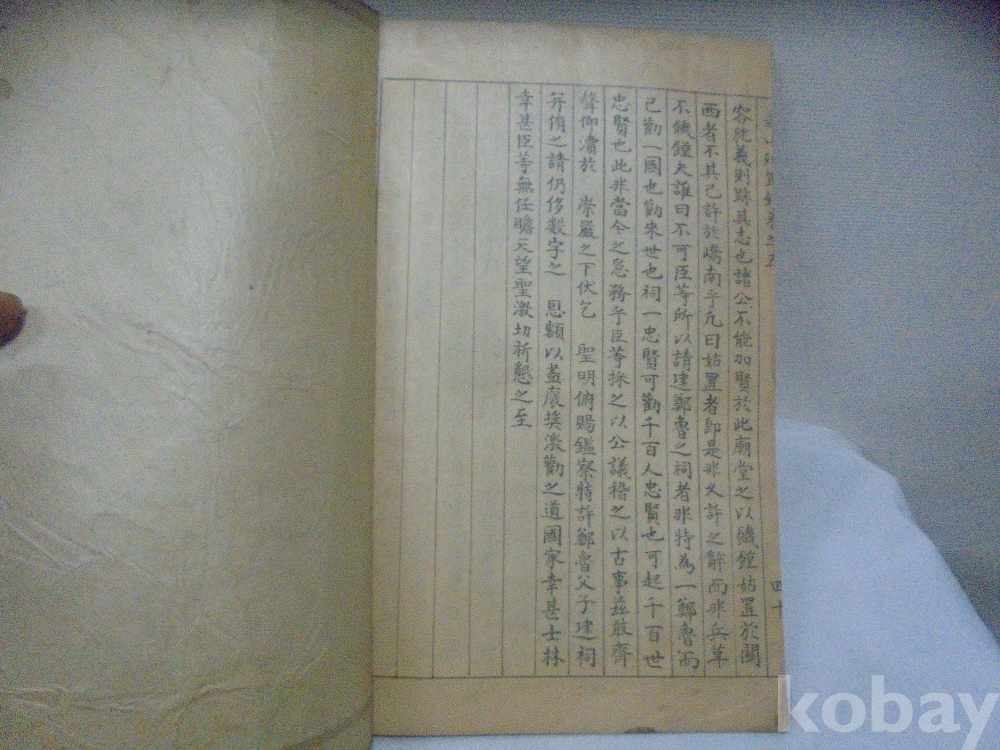 容純義則跡其志也諸公不能加賢於此廟堂之以饑饉姑置於關
西者不其已許於嶠南乎况曰姑置者卽是非久許之辭而非兵革
不饑饉夫誰曰不可臣等所以請建鄭魯之祠者非特為一鄭魯而
已勸一國也勸來世也祠一忠賢可勸千百人忠賢也可起千百世
忠賢也此非當今之急務乎臣等採之以公議稽之以古事玆敢齊
聲仰瀆於 崇嚴之下伏乞 聖明俯賜鑑察特許鄭魯父子建祠
并侑之請仍侈數字之 恩額以盡褒奬激勸之道國家幸甚士林
幸甚臣等無任瞻天望聖激切祈懇之至
四十
kobay